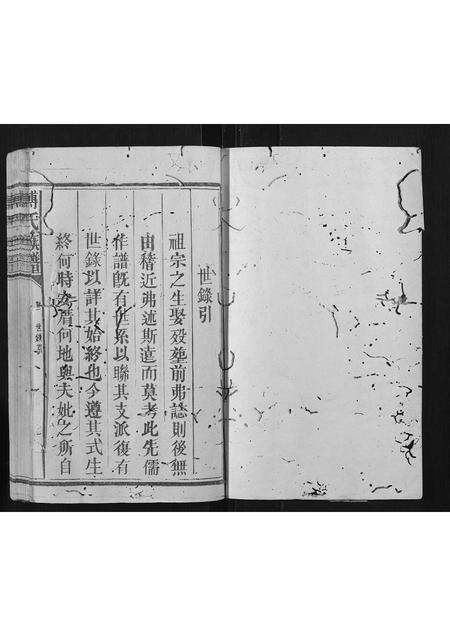 世錄引
祖宗之生娶歿塟前弗誌則後無
由稽近弗述斯遠而莫考此先儒
作譜既有世系以聯其支派復有
世錄以詳其始終也今遵其式生
終何時及厝何地與夫妣之所自
氏族譜
世錄